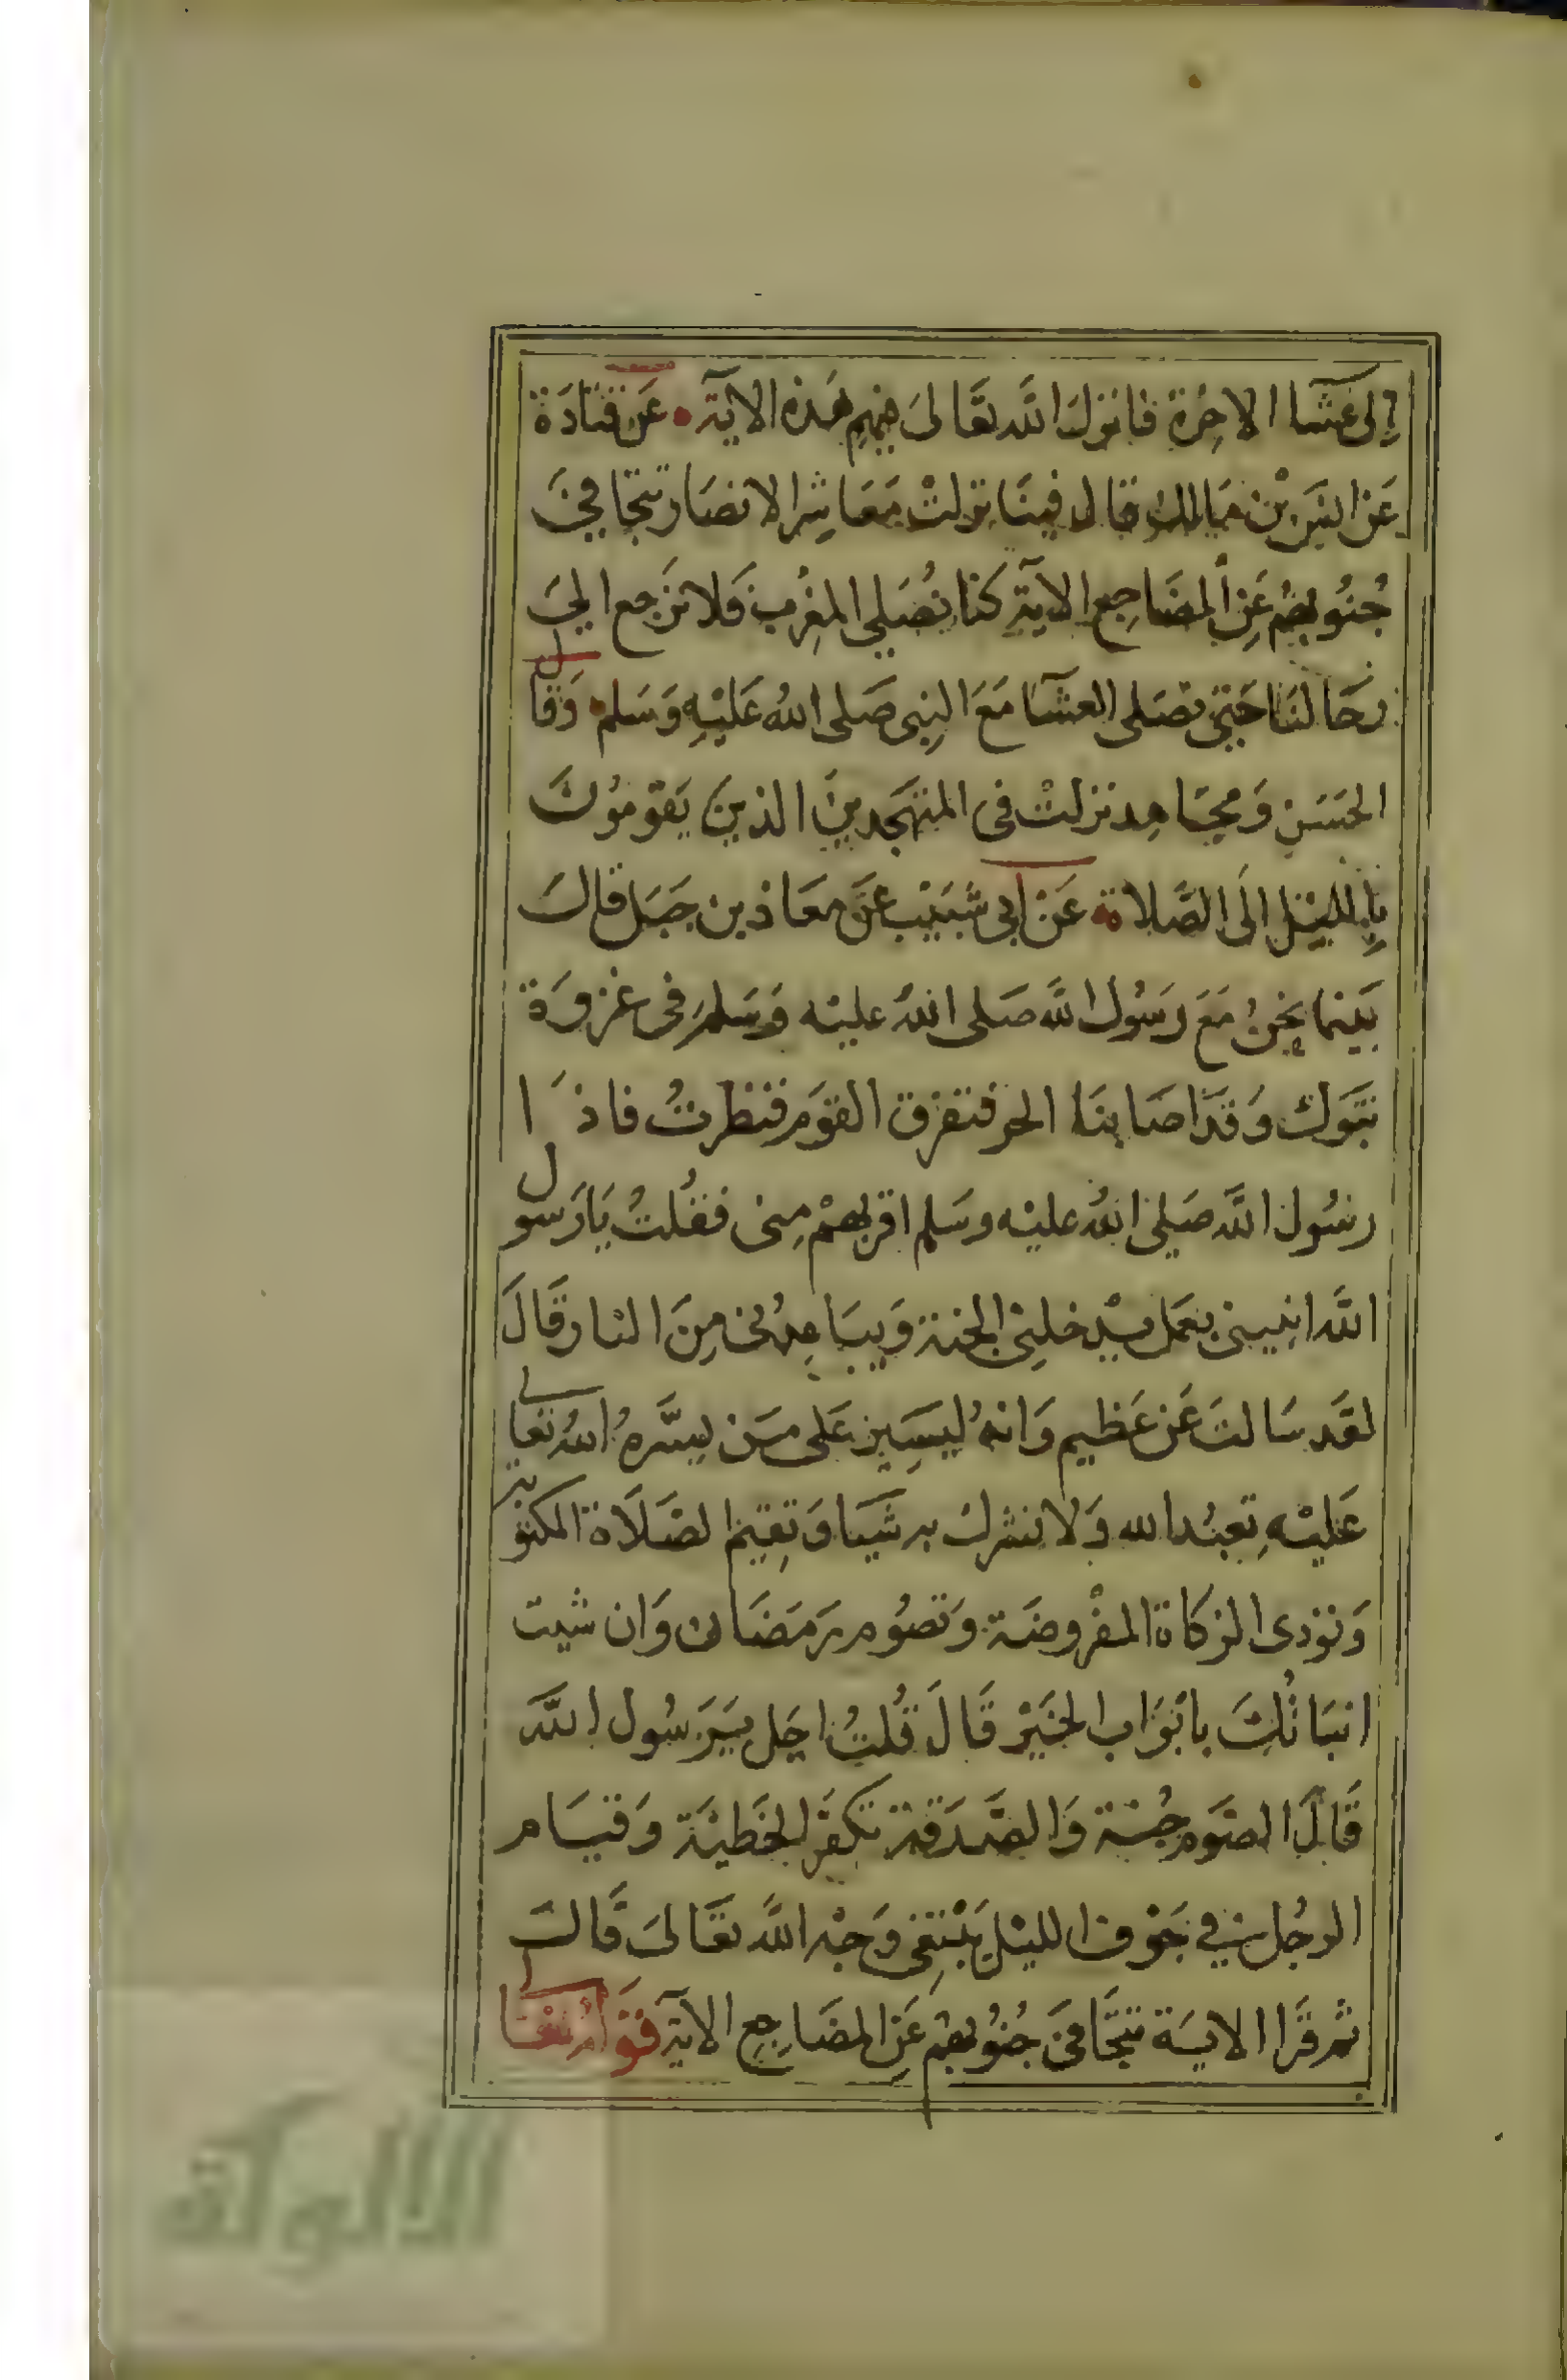 إلى عشآا الاخرة فانزل الله تعالى فيهم هذه الآية عن قتادة
عن انس بن مالك قال فينا نزلت معاشر الانصار تتجافى
جنوبهم عن المضاجع الآية كنا نصلي المغرب فلا نرجع الى
رحالنا حتى نصلى العشآا مع النبى صلى الله عليه وسلم وقال
الحسن ومجاهد نزلت فى المتهجدين الذين يقومون
بالليل الى الصلاة عن ابى شبيب عن معاذ بن جبل قال
بينما نحن مع رسول الله صلى الله عليه وسلم فى غزوة
تبوك وقد اصابنا الحر فتفرق القوم فنظرت فاذا
رسول الله صلى الله عليه وسلم اقربهم منى فقلت يا رسول
الله انبينى بعمل يدخلنى الجنة ويباعدنى من النار قال
لقد سالت عن عظيم وانه ليسير على من يسره الله تعالى
عليه تعبد الله ولا تشرك به شيا وتقيم الصلاة المكتوبة
وتودى الزكاة المفروضة وتصوم رمضان وان شيت
انباتك بابواب الخير قال قلت اجل يرسول الله
قال الصوم جنة والصدقة تكفر الخطيئة وقيام
الرجل في جوف الليل يبتغى وجه الله تعالى قال
ثم قرا الاية تتجافى جنوبهم عن المضاجع الآية قوله تعالى
الألوكة